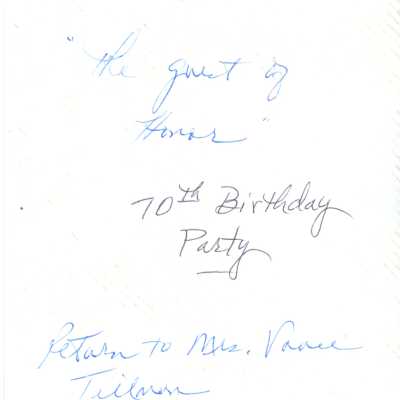 "The guest of
Honor"
70th Birthday
Party
Return to Mrs. Vance
Tillman